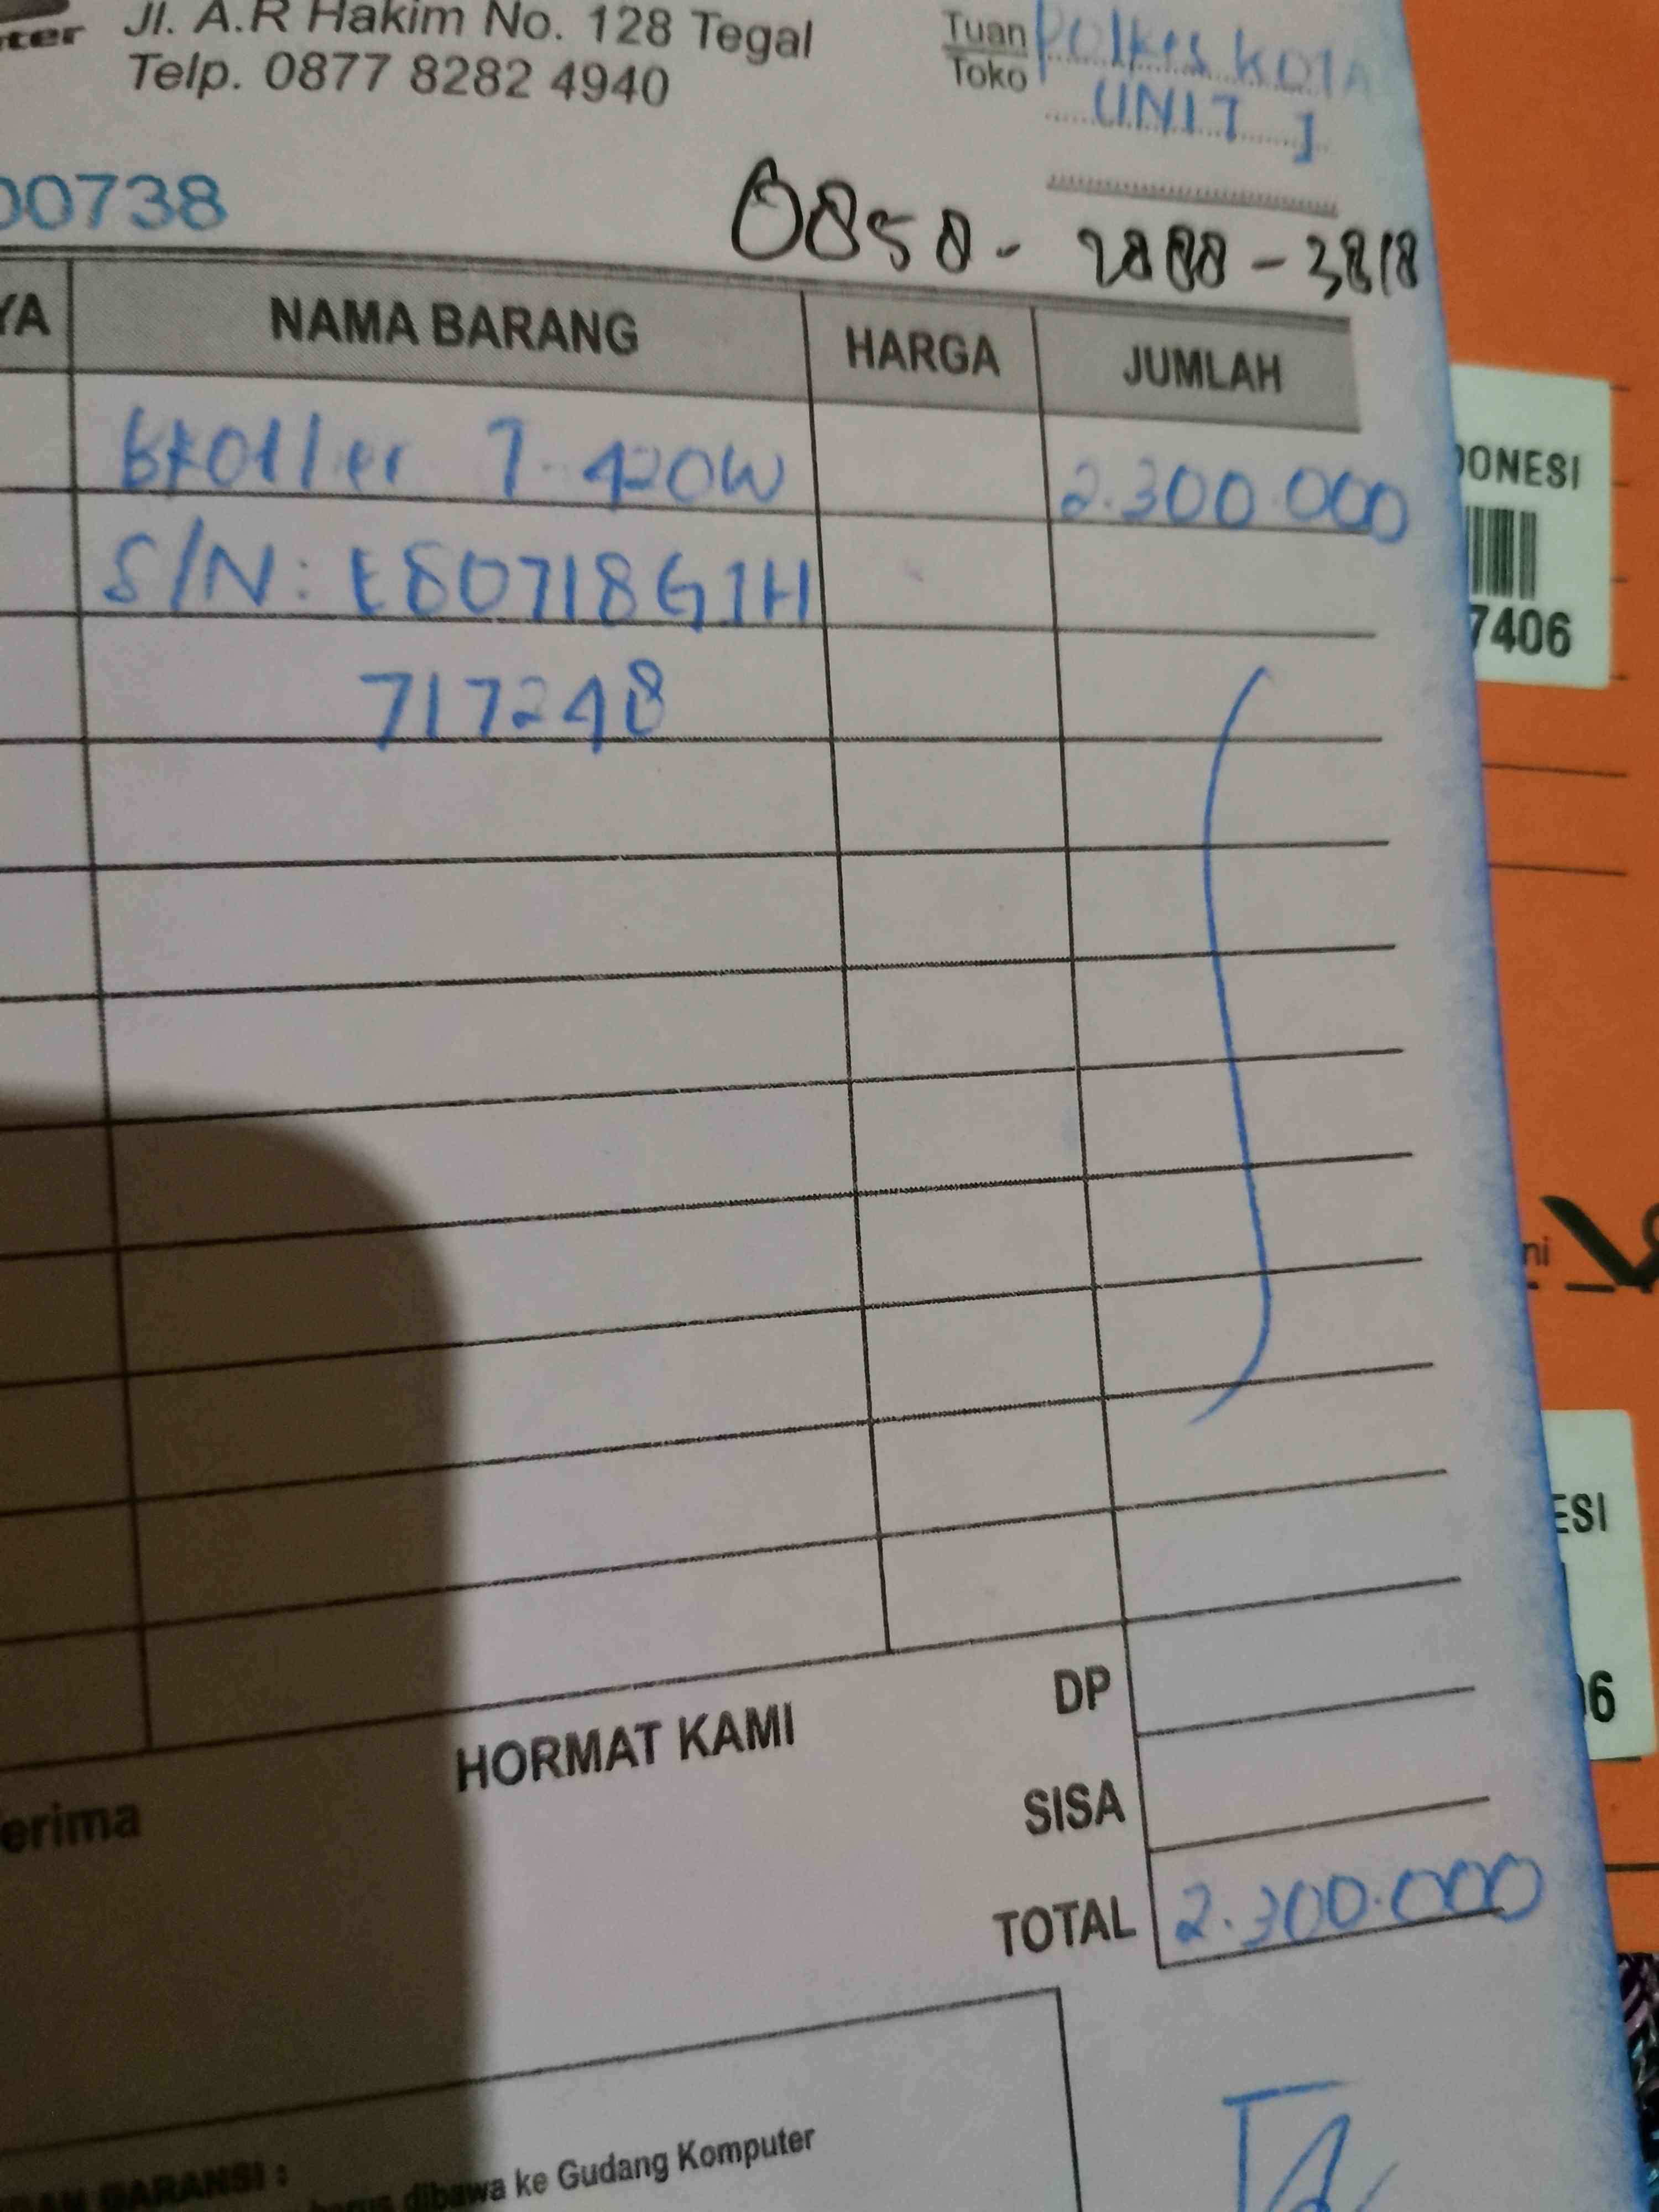 Jl. A.R Hakim No. 128 Tegal
Telp. 0877 8282 4940
Tuan
Toko
Polkes KOTA
UNIT I
00738
0850 - 2888 - 3818
NAMA BARANG HARGA JUMLAH
T-420W 2.300.000
S/N: E80718G1H
717248
DP
HORMAT KAMI
SISA
erima
TOTAL 2.300.000
GARANSI :
harus dibawa ke Gudang Komputer
DONESI
7406
ESI